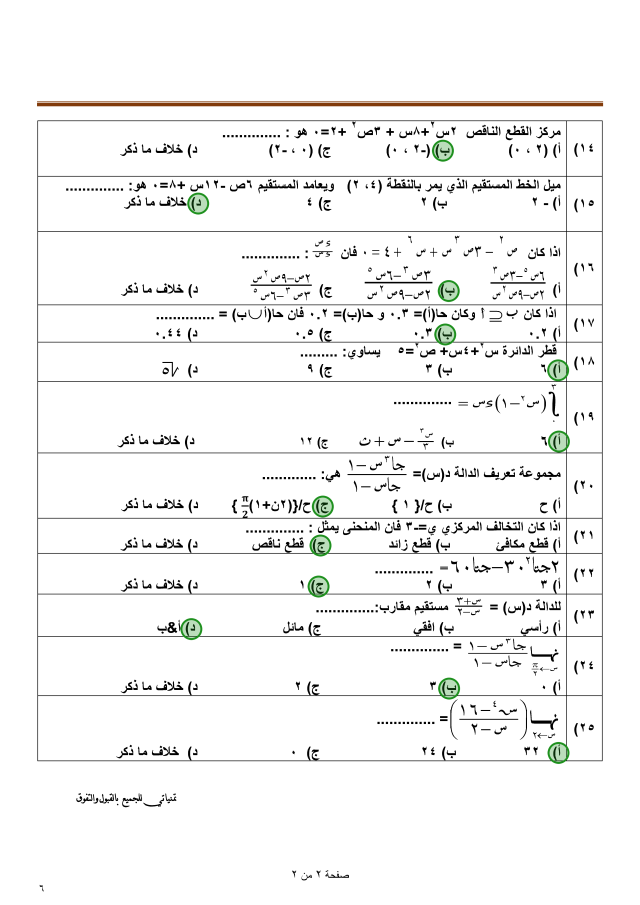 ١٤) مركز القطع الناقص ٢س٢+٨س + ٣ص٢ +٢=٠ هو : ..............
أ) (٢ ، ٠) ب) (-٢ ، ٠) ج) (٠ ، -٢) د) خلاف ما ذكر
١٥) ميل الخط المستقيم الذي يمر بالنقطة (٤، ٢) ويعامد المستقيم ٦ص -١٢س +٨=٠ هو: ..............
أ) - ٢ ب) ٢ ج) ٤ د) خلاف ما ذكر
١٦) اذا كان ص٢ - ٣ص س٣ + س٦ + ٤ = ٠ فان ءص/ءس : ..............
أ) ٦س٥-٣ص٣ / ٢ص-٩ص س٢ ب) ٣ص٣-٦س٥ / ٢ص-٩س٢س ج) ٢ص-٩ص س٢ / ٣ص٣-٦س٥ د) خلاف ما ذكر
١٧) اذا كان ب ⊆ أ وكان حا(أ)= ٠.٣ و حا(ب)= ٠.٢ فان حا(أ∪ب) = ..............
أ) ٠.٢ ب) ٠.٣ ج) ٠.٥ د) ٠.٤٤
١٨) قطر الدائرة س٢+٤س+ ص٢=٥ يساوي: .........
أ) ٦ ب) ٣ ج) ٩ د) √٥
١٩) ∫ (س٢-١) ءس = ..............
أ) ٦ ب) س٣/٣ - س + ث ج) ١٢ د) خلاف ما ذكر
٢٠) مجموعة تعريف الدالة د(س)= جا٣س-١ / جاس-١ هي: .............
أ) ح ب) ح/{ ١ } ج) ح/{(٢ن+١)π/2 } د) خلاف ما ذكر
٢١) اذا كان التخالف المركزي ي=-٣ فان المنحنى يمثل : ..............
أ) قطع مكافئ ب) قطع زائد ج) قطع ناقص د) خلاف ما ذكر
٢٢) ٢جتا٢٣٠-جتا٦٠= ..............
أ) ٣ ب) ٢ ج) ١ د) خلاف ما ذكر
٢٣) للدالة د(س) = س+٣ / س-٢ مستقيم مقارب:..............
أ) رأسي ب) افقي ج) مائل د) أ&ب
٢٤) نهـــا س←π/٢ جا٣س-١ / جاس-١ = ..............
أ) ٠ ب) ٣ ج) ٢ د) خلاف ما ذكر
٢٥) نهـــا س←٢ (س٤-١٦ / س-٢)= ..............
أ) ٣٢ ب) ٢٤ ج) ٠ د) خلاف ما ذكر
تمنياتي للجميع بالقبول والتفوق
صفحة ٢ من ٢
٦